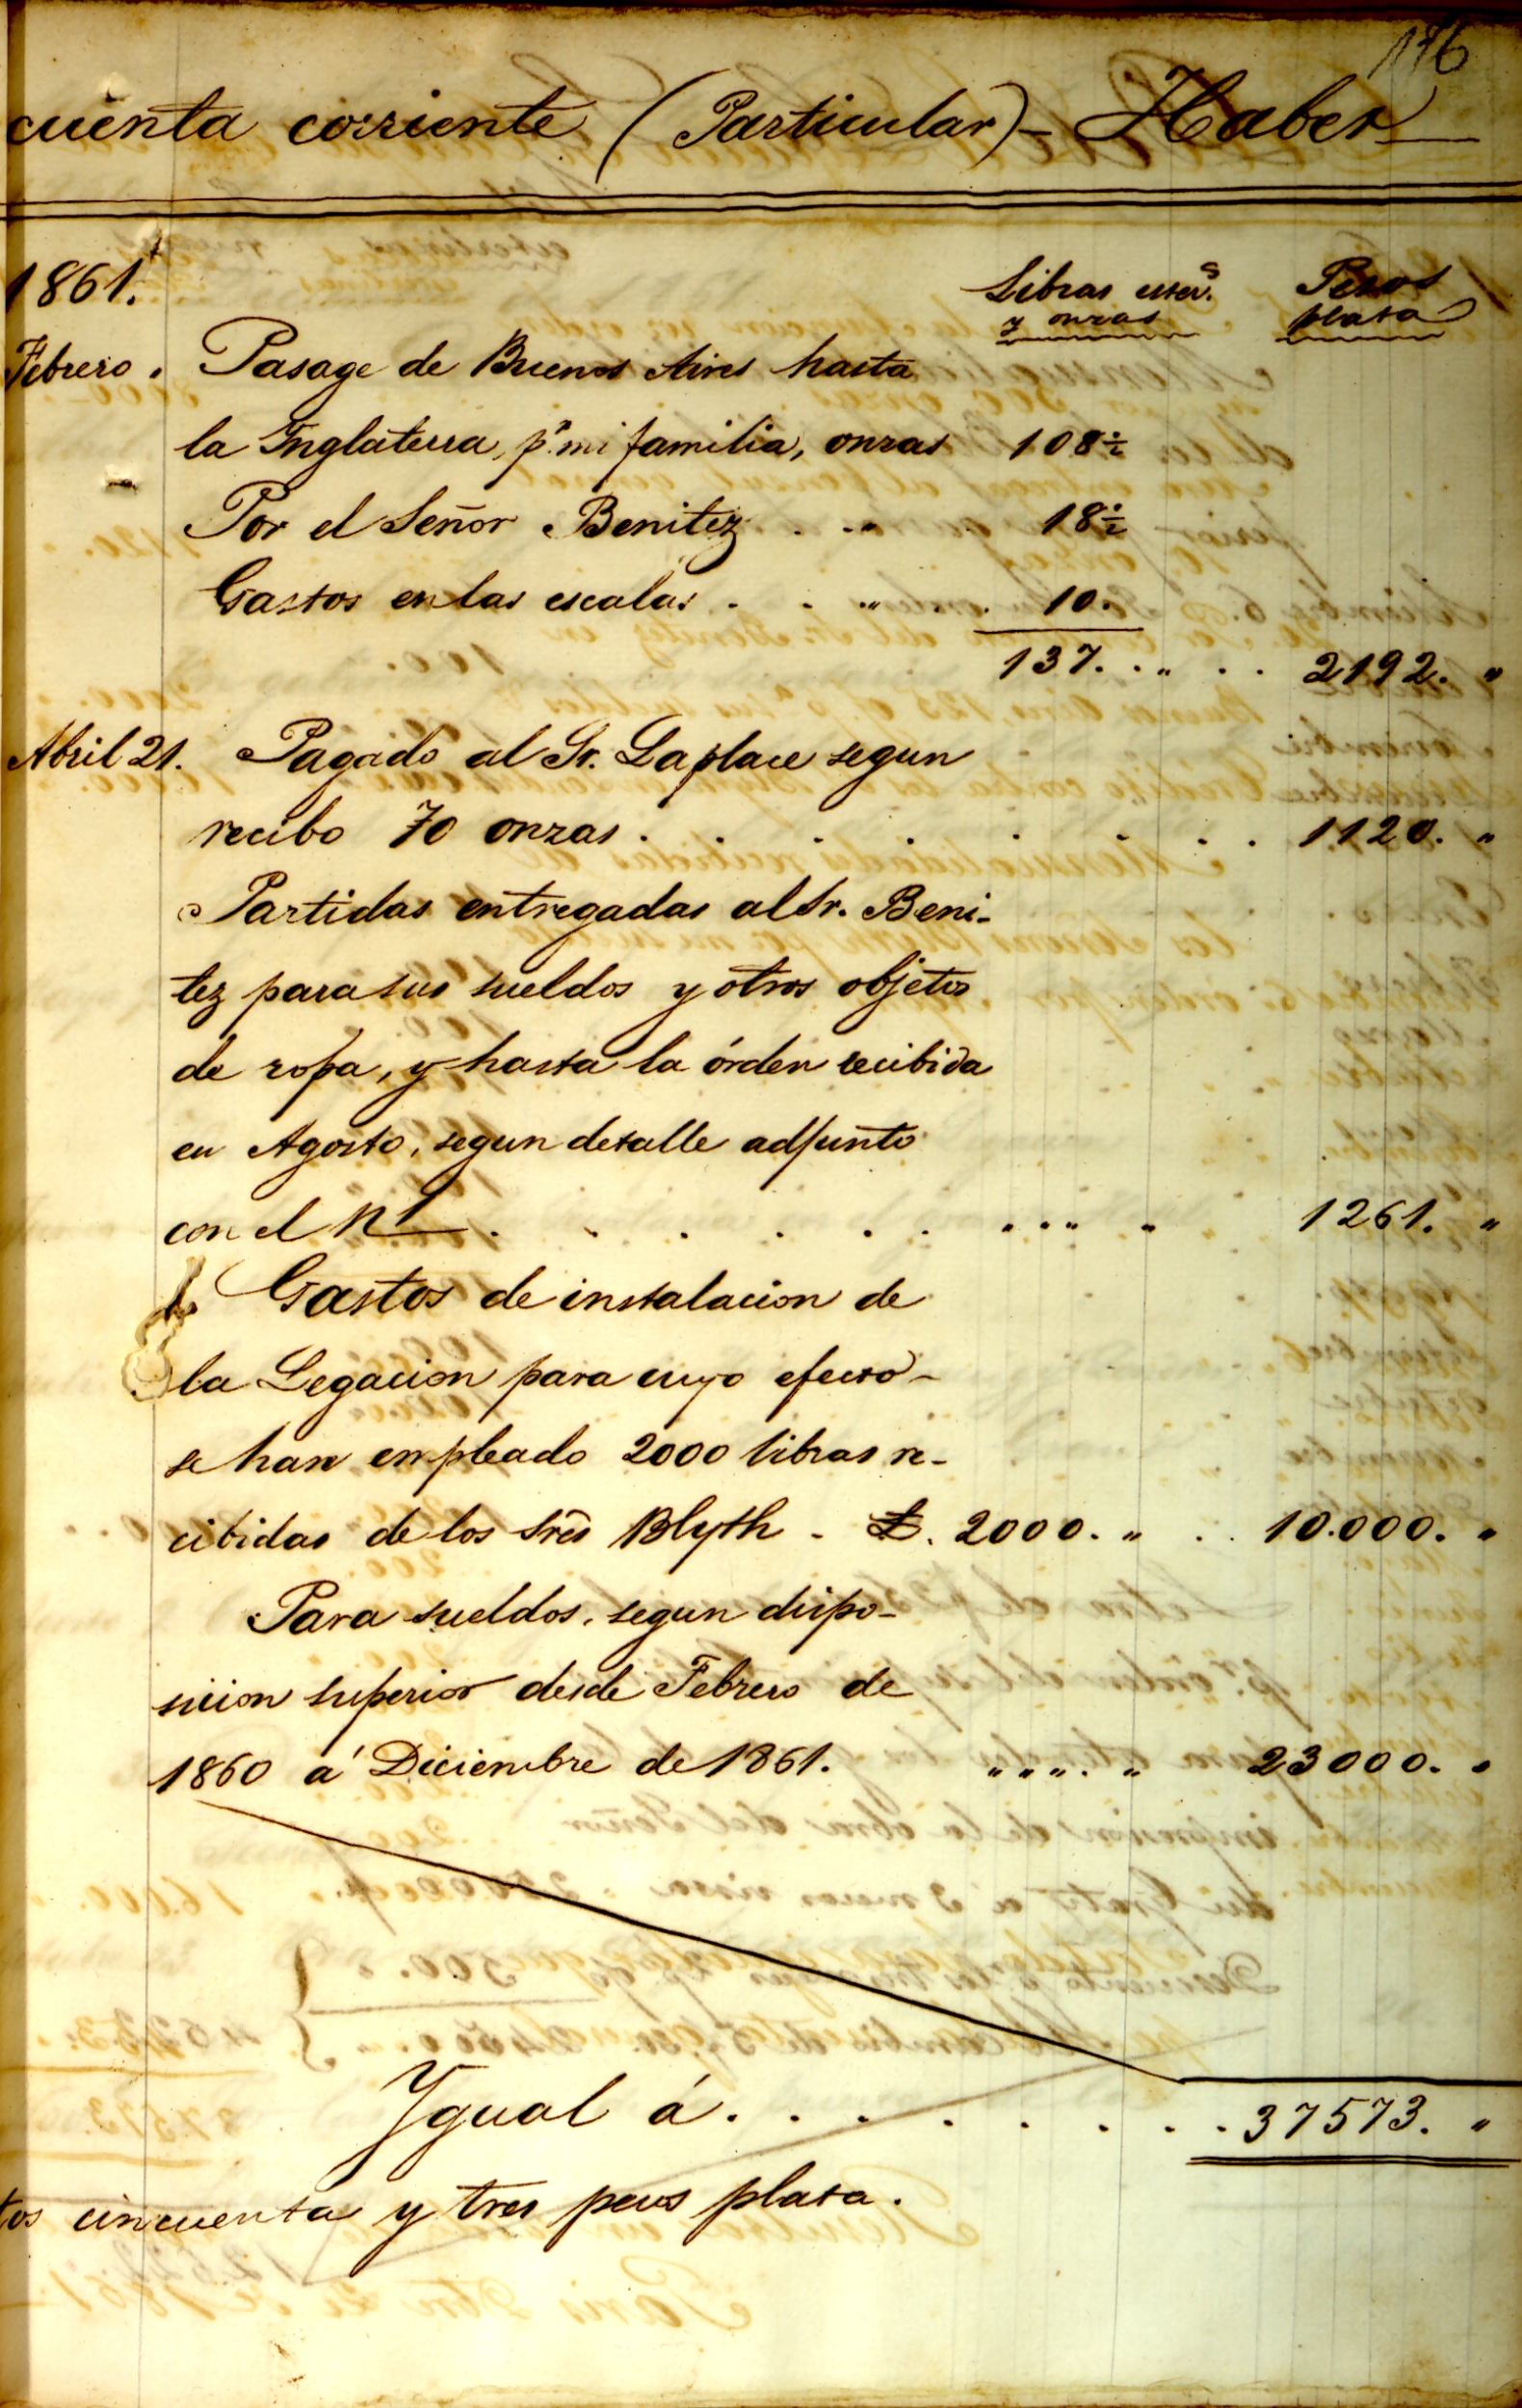 176
cuenta corriente (Particular) - Haber
1861.
Libras ester.s Pesos
y onzas plata
Febrero. Pasage de Buenos Aires hasta
la Inglaterra, pr. mi familia, onzas 108½
Por el Señor Benitez . . " 18½
Gastos en las escalas . . " . 10.
137. . " . . 2192. "
Abril 21. Pagado al Sr. Laplace segun
recibo 70 onzas . . . . . . . . 1120. "
Partidas entregadas al Sr. Beni-
tez para sus sueldos y otros objetos
de ropa, y hasta la órden recibida
en Agosto, segun detalle adjunto
con el N 1 . . . . . . . . . " " 1261. "
Gastos de instalacion de
la Legacion para cuyo efecto -
se han empleado 2000 libras re-
cibidas de los Sres Blyth - £. 2000. " . . 10.000. "
Para sueldos, segun dispo-
sicion superior desde Febrero de
1860 á Diciembre de 1861. " " " . " 23000. "
Ygual á . . . . . . . . 37573. "
tos cincuenta y tres pesos plata.